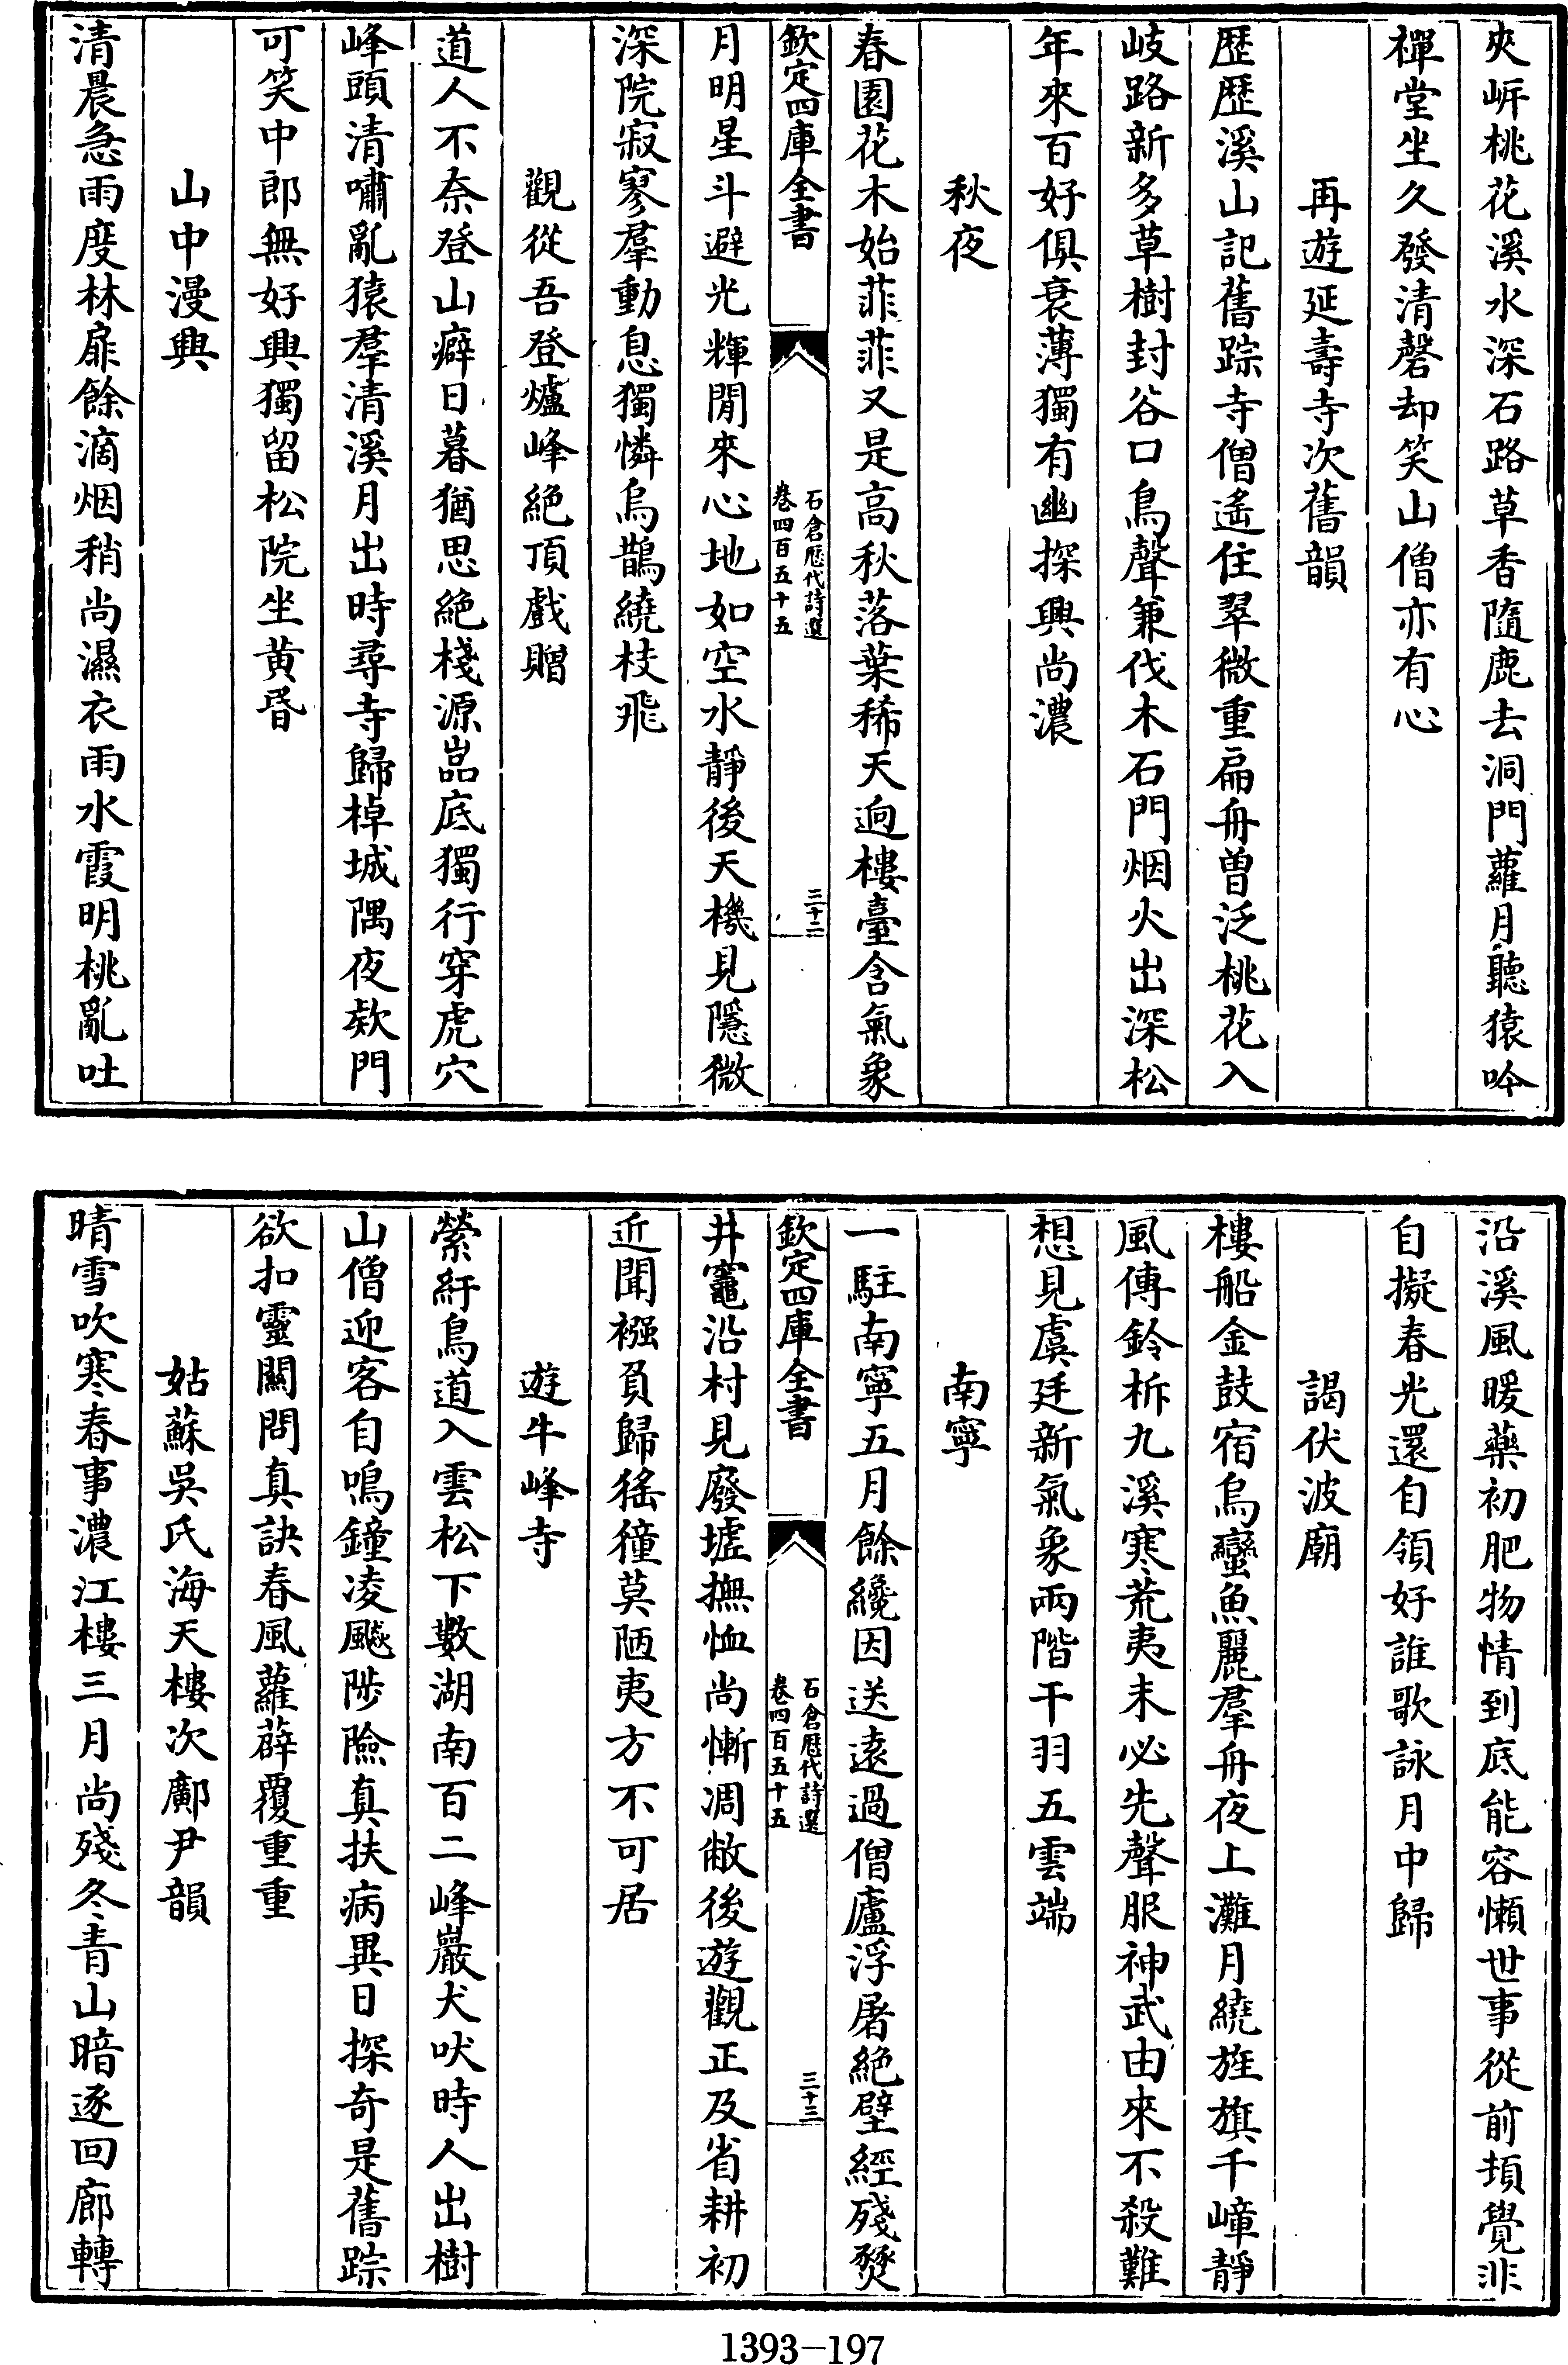 夾岍桃花溪水深石路草香隨鹿去洞門蘿月聽猿吟
禪堂坐久發清磬却笑山僧亦有心
再遊延壽寺次舊韻
歷歷溪山記舊踪寺僧遙住翠微重扁舟曾泛桃花入
岐路新多草樹封谷口鳥聲兼伐木石門烟火出深松
年來百好俱衰薄獨有幽探興尚濃
秋夜
春園花木始菲菲又是高秋落葉稀天逈樓臺含氣象
欽定四庫全書
石倉歷代詩選
卷四百五十五
三十二
月明星斗避光輝閒來心地如空水靜後天機見隱微
深院寂寥羣動息獨憐烏鵲繞枝飛
觀從吾登爐峰絕頂戲贈
道人不奈登山癖日暮猶思絕棧源嵓底獨行穿虎穴
峰頭清嘯亂猿羣清溪月出時尋寺歸棹城隅夜欵門
可笑中郎無好興獨留松院坐黃昏
山中漫興
清晨急雨度林扉餘滴烟稍尚濕衣雨水霞明桃亂吐
沿溪風暖藥初肥物情到底能容懶世事從前頊覺非
自擬春光還自領好誰歌詠月中歸
謁伏波廟
樓船金鼓宿烏蠻魚麗羣舟夜上灘月繞旌旗千嶂靜
風傳鈴柝九溪寒荒夷未必先聲服神武由來不殺難
想見虞廷新氣象兩階干羽五雲端
南寧
一駐南寧五月餘纔因送遠過僧廬浮屠絕壁經殘燹
欽定四庫全書
石倉歷代詩選
卷四百五十五
三十三
井竈沿村見廢墟撫恤尚慚凋敝後遊觀正及省耕初
近聞襁負歸徭獞莫陋夷方不可居
遊牛峰寺
縈紆鳥道入雲松下數湖南百二峰巖犬吠時人出樹
山僧迎客自鳴鐘凌飈陟險真扶病異日探奇是舊踪
欲扣靈關問真訣春風蘿薜覆重重
姑蘇吳氏海天樓次鄺尹韻
晴雪吹寒春事濃江樓三月尚殘冬青山暗逐回廊轉
1393-197